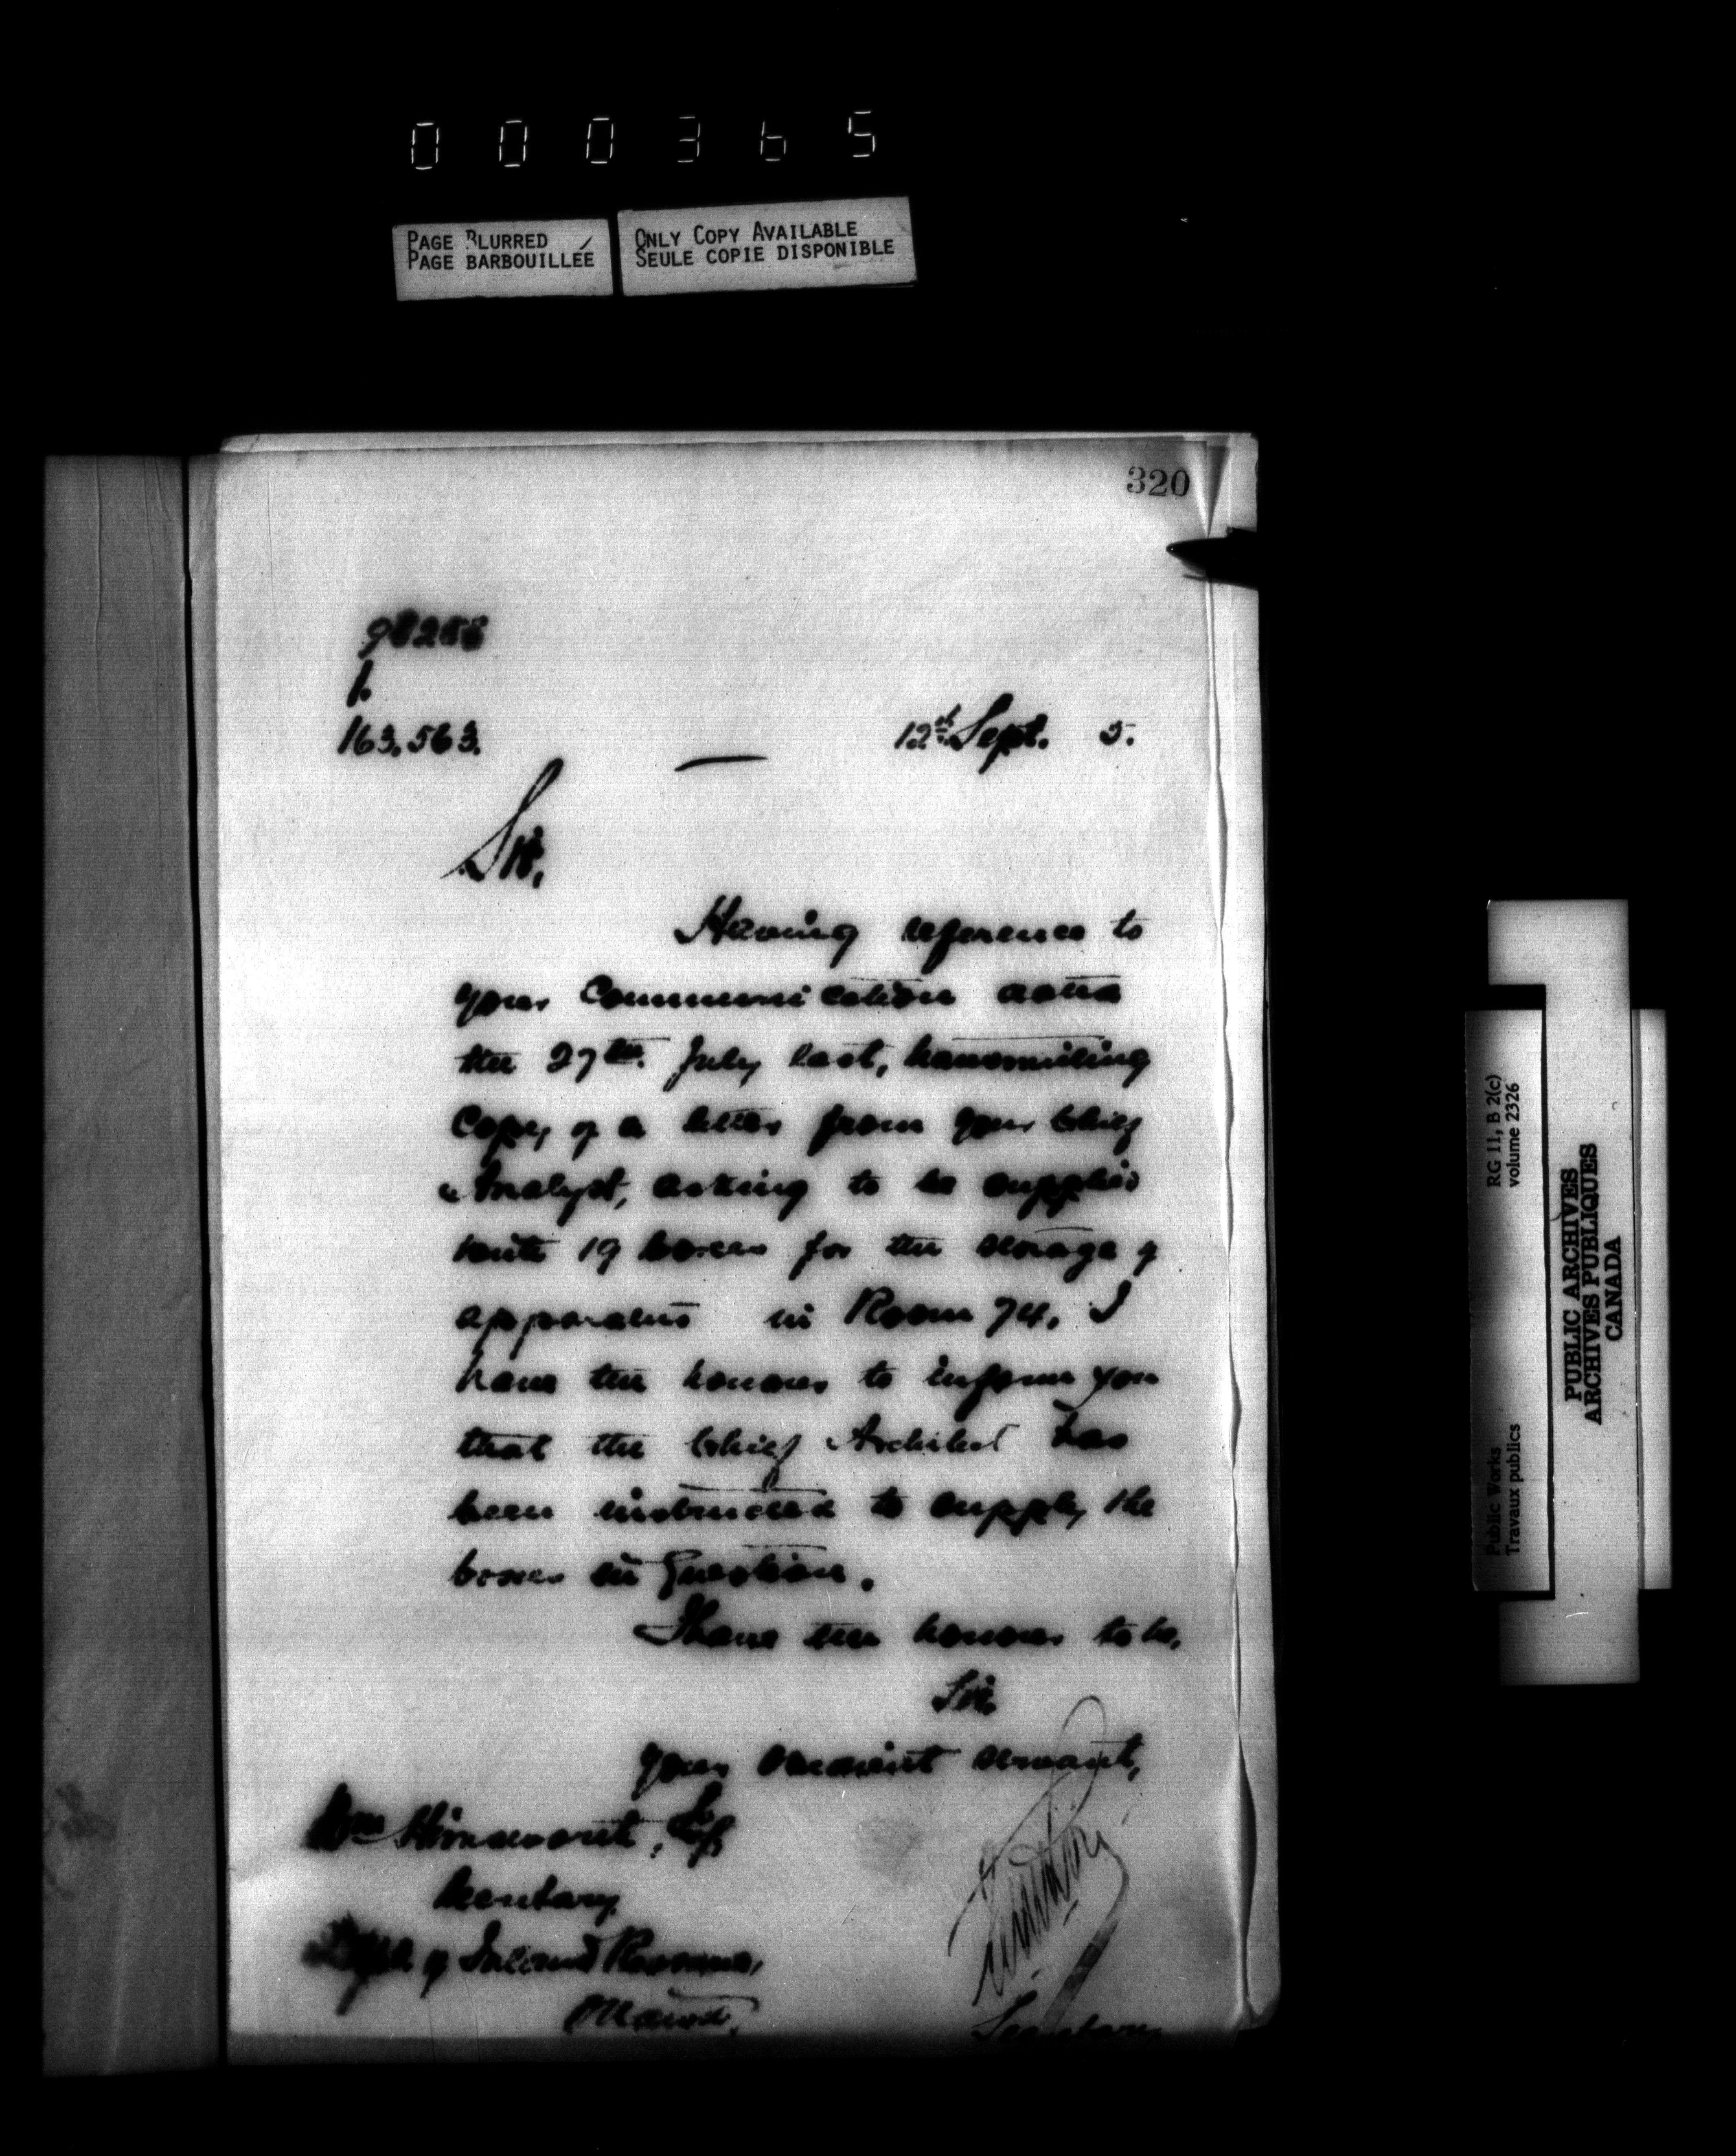 000365
PAGE BLURRED
PAGE BARBOUILLÉE
ONLY COPY AVAILABLE
SEULE COPIE DISPONIBLE
320
1.
163.563.
12th Sept. 5.
Sir,
Having reference to
your Communication dated
the 27th. July last, transmitting
Copy of a letter from your Chief
Analyst, asking to be supplied
with 19 boxes for the storage of
apparatus in Room 74, I
have the honour to inform you
that the Chief Architect has
been instructed to supply the
boxes in question.
I have the honour to be,
Sir,
your obedient servant,
Wm Himsworth, Esq
Secretary
Dept. of Inland Revenue,
Ottawa.
Secretary
Public Works
Travaux publics
RG 11, B 2(c)
volume 2326
PUBLIC ARCHIVES
ARCHIVES PUBLIQUES
CANADA